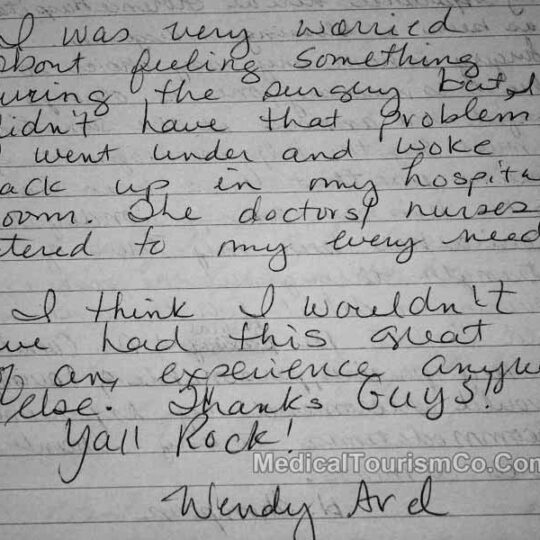 I was very worried
about feeling something
uring the surgury but I
didn't have that problem
I went under and woke
ack up in my hospita
oom. The doctors/nurses
tered to my every need
I think I wouldn't
ve had this great
of an, experience anyw
else. Thanks Guys!
Yall Rock!
MedicalTourismCo.Com
Wendy Ard